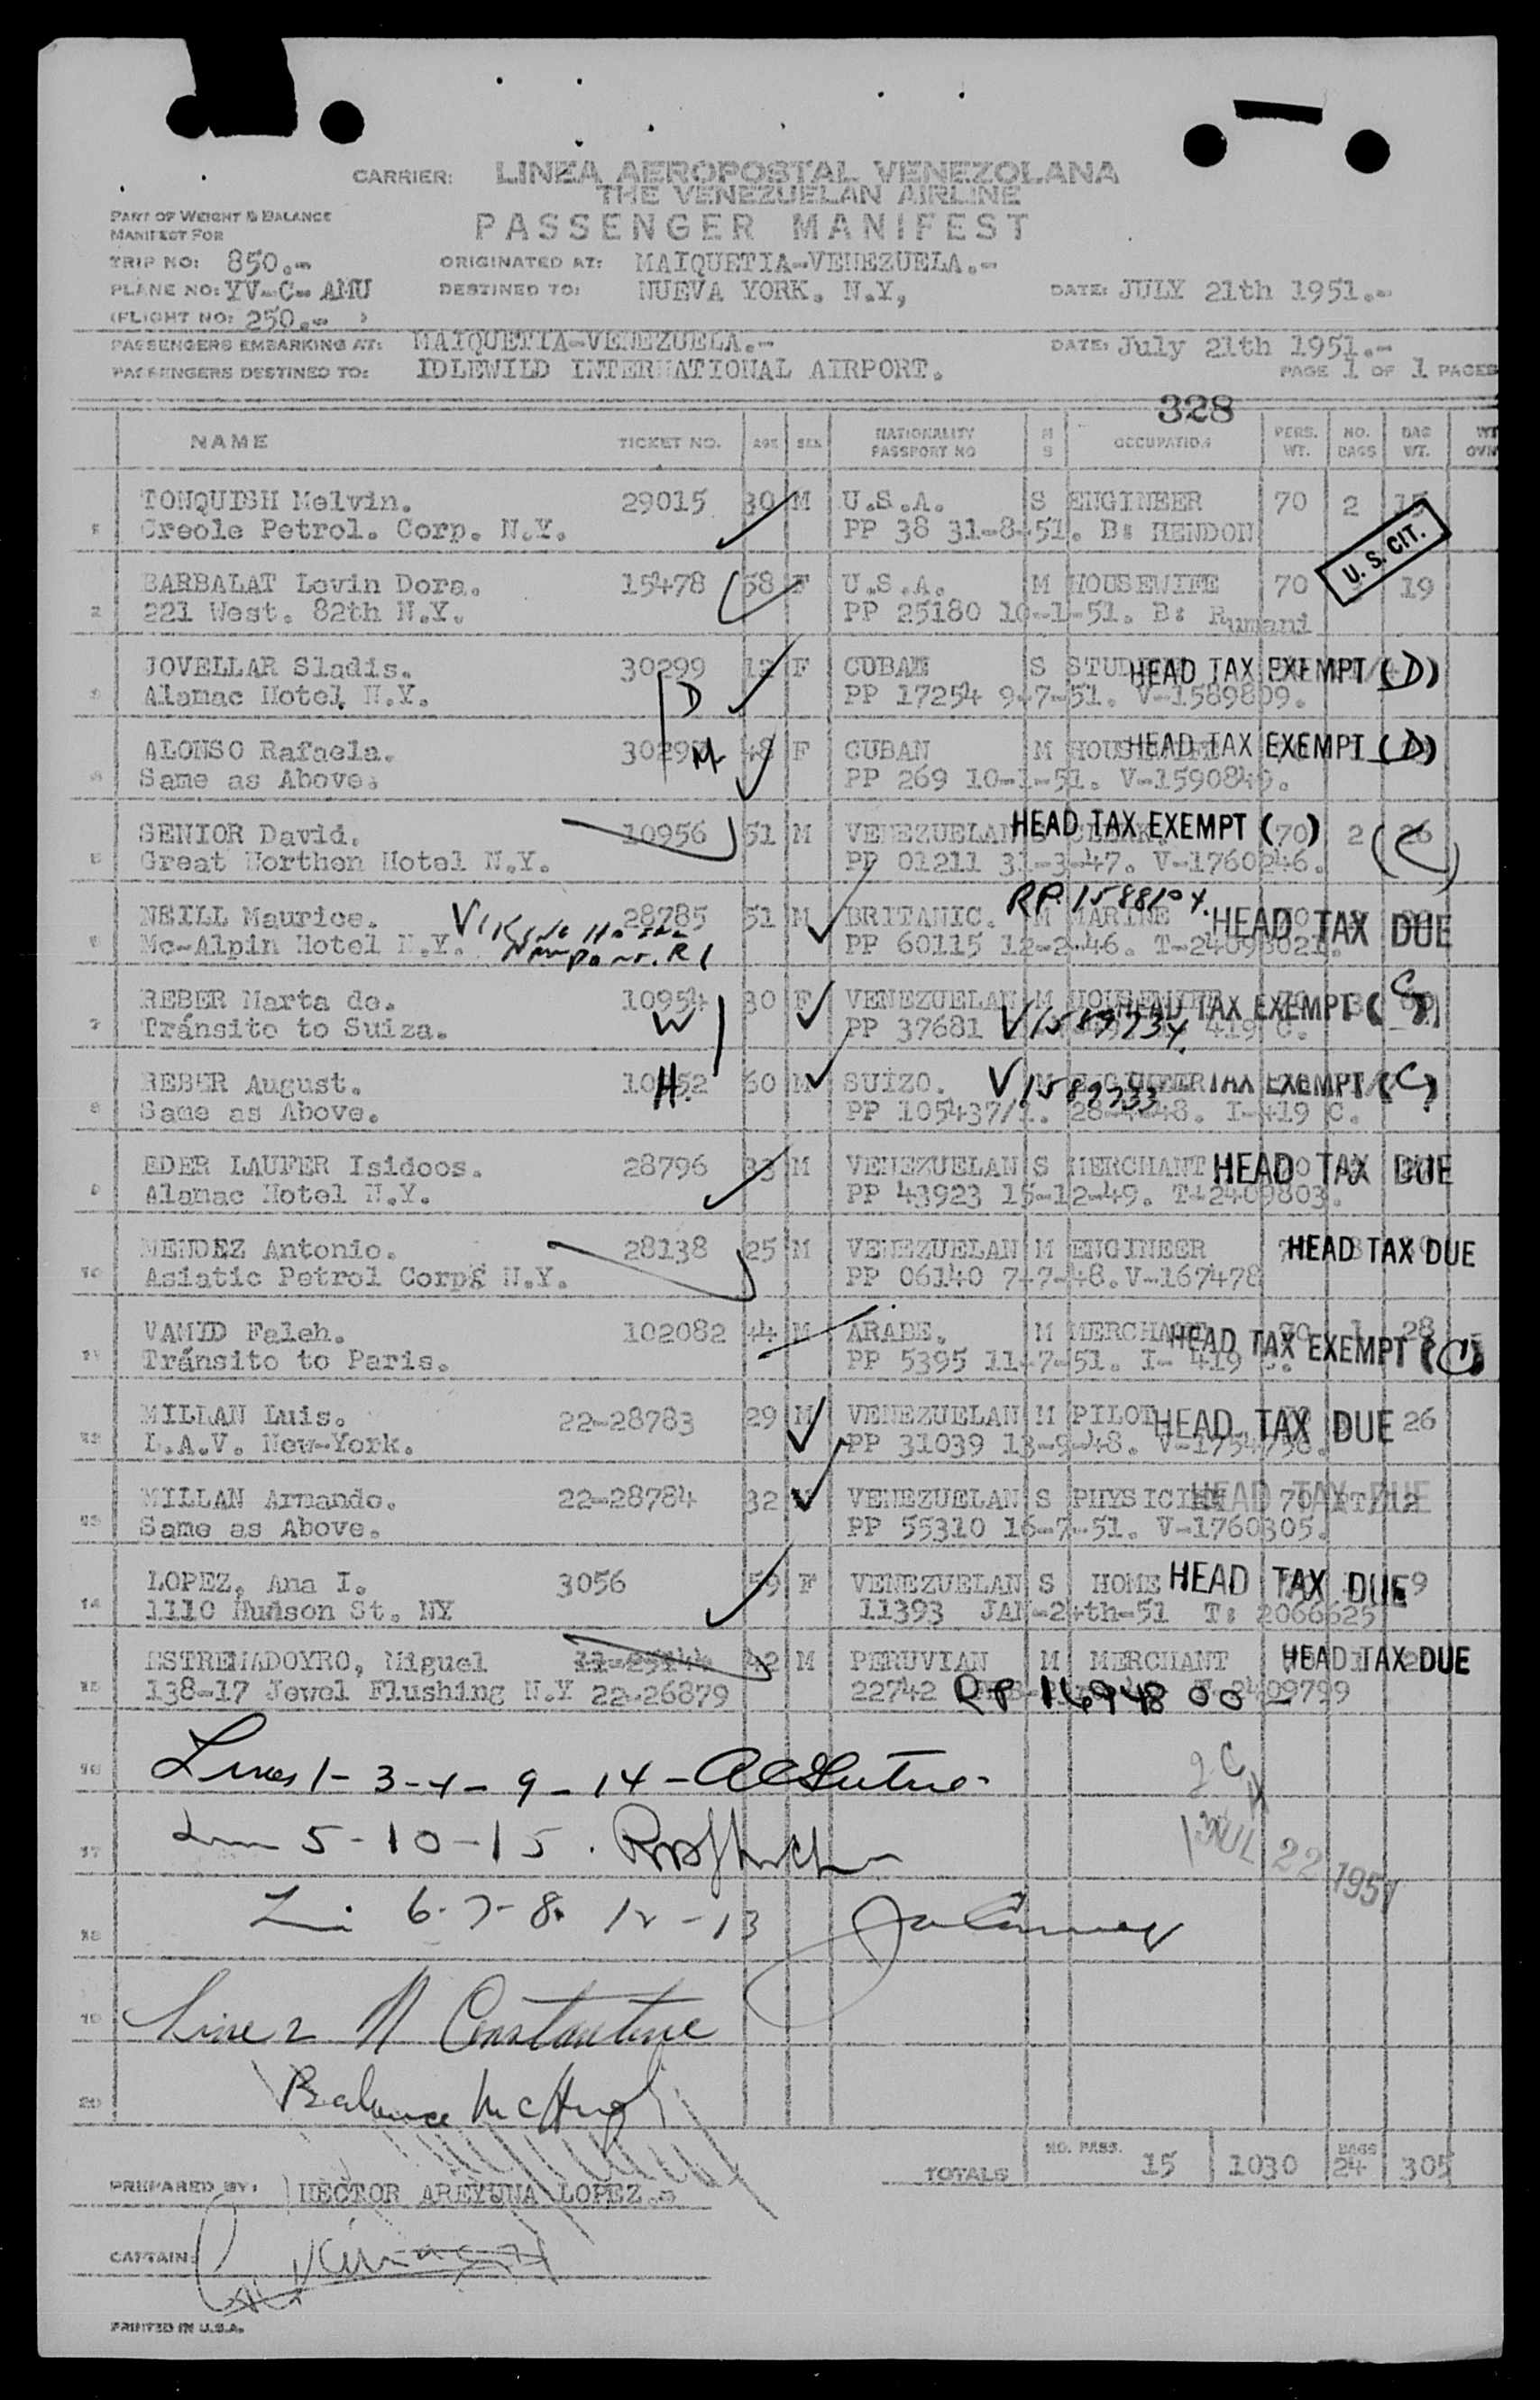 CARRIER: LINEA AEROPOSTAL VENEZOLANA
THE VENEZUELAN AIRLINE
PASSENGER MANIFEST
PART OF WEIGHT & BALANCE
MANIFEST FOR
TRIP NO: 850.- ORIGINATED AT: MAIQUETIA-VENEZUELA.-
PLANE NO: YV-C- AMU DESTINED TO: NUEVA YORK. N.Y, DATE: JULY 21th 1951.-
(FLIGHT NO: 250.- )
PASSENGERS EMBARKING AT: MAIQUETIA-VENEZUELA.- DATE: July 21th 1951.-
PASSENGERS DESTINED TO: IDLEWILD INTERNATIONAL AIRPORT. PAGE 1 OF 1 PAGES
328
NAME TICKET NO. AGE SEX NATIONALITY PASSPORT NO M S OCCUPATION PERS. WT. NO. BAGS BAG WT. WT OVN
TONQUISH Melvin. 29015 30 M U.S.A. S ENGINEER 70 2 15
1 Creole Petrol. Corp. N.Y. PP 38 31-8-51. B: HENDON
U. S. CIT.
BARBALAT Levin Dora. 15478 58 F U.S.A. M HOUSEWIFE 70 19
2 221 West. 82th N.Y. PP 25180 10-1-51. B: Rumani
JOVELLAR Sladis. 30299 12 F CUBAN S HEAD TAX EXEMPT (D)
3 Alamac Hotel N.Y. D PP 17254 9-7-51. V-1589809.
ALONSO Rafaela. M 48 F CUBAN M HEAD TAX EXEMPT (D)
4 Same as Above. PP 269 10-1-51. V-1590849.
SENIOR David. 10956 51 M VENEZUELAN HEAD TAX EXEMPT (70) 2 26
5 Great Northen Hotel N.Y. PP 01211 31-3-47. V-1760246.
RP 1588104
NEILL Maurice. 28785 51 M BRITANIC. M MARINE HEAD TAX DUE
6 Mc-Alpin Hotel N.Y. Newport. R I PP 60115 12-2-46. T-24093021.
REBER Marta de. 10954 30 F VENEZUELAN M HOUSEWIFE HEAD TAX EXEMPT (C)
7 Tránsito to Suiza. W PP 37681 V1589734 419 C.
REBER August. H. 60 M SUIZO. V1589733 TAX EXEMPT (C)
8 Same as Above. PP 105437/1. 28-4-48. I-419 C.
EDER LAUFER Isidoos. 28796 33 M VENEZUELAN S MERCHANT HEAD TAX DUE
9 Alamac Hotel N.Y. PP 43923 15-12-49. T-2409803.
MENDEZ Antonio. 28138 25 M VENEZUELAN M ENGINEER HEAD TAX DUE
10 Asiatic Petrol Corp. N.Y. PP 06140 7-7-48. V-167478
VAMID Faleh. 102082 44 M ARABE. M MERCHANT 70 1 28
HEAD TAX EXEMPT (C)
11 Tránsito to Paris. PP 5395 11-7-51. I- 419
MILLAN Luis. 22-28783 29 M VENEZUELAN M PILOT HEAD TAX DUE 26
12 L.A.V. New-York. PP 31039 13-9-48.
MILLAN Armando. 22-28784 32 M VENEZUELAN S PHYSICIAN HEAD TAX DUE 70
13 Same as Above. PP 55310 16-7-51. V-1760305.
LOPEZ, Ana I. 3056 59 F VENEZUELAN S HOME HEAD TAX DUE 9
14 1110 Hudson St. NY 11393 JAN-24th-51 T: 2066625
ESTREMADOYRO, Miguel 11-25144 42 M PERUVIAN M MERCHANT HEAD TAX DUE
15 138-17 Jewel Flushing N.Y 22-26879 22742 RP 1694800 -
16 Lines 1 - 3 - 4 - 9 - 14 -
17 5 - 10 - 15.
JUL 22 1951
18 6 - 7 - 8. 12 - 13
19 Line 2 N Constantine
20 Balance McHugh
TOTALS NO. PASS. 15 1030 BAGS 24 305
PREPARED BY: HECTOR AREYUNA LOPEZ.-
CAPTAIN:
PRINTED IN U.S.A.